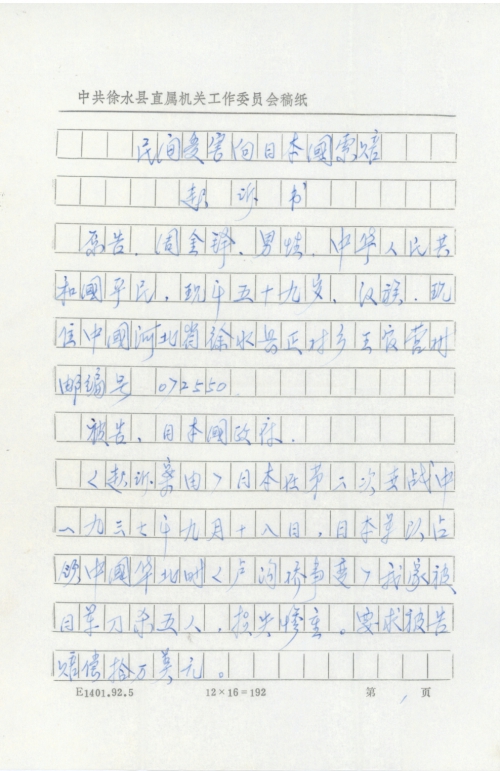 中共徐水县直属机关工作委员会稿纸
民间受害向日本國索赔
起诉书
原告，周金锋，男性，中华人民共
和國平民，现年五十九岁，汉族，现
住中國河北省徐水县正村乡王官营村
邮编号 072550
被告，日本國政府．
〈起诉案由〉日本在第二次世战中
一九三七年九月十八日，日本军队占
领中國华北时〈卢沟桥事变〉我家被
日军刀杀五人，损失惨重。要求被告
赔偿拾万美元。
E1401.92.5 12×16=192 第 页